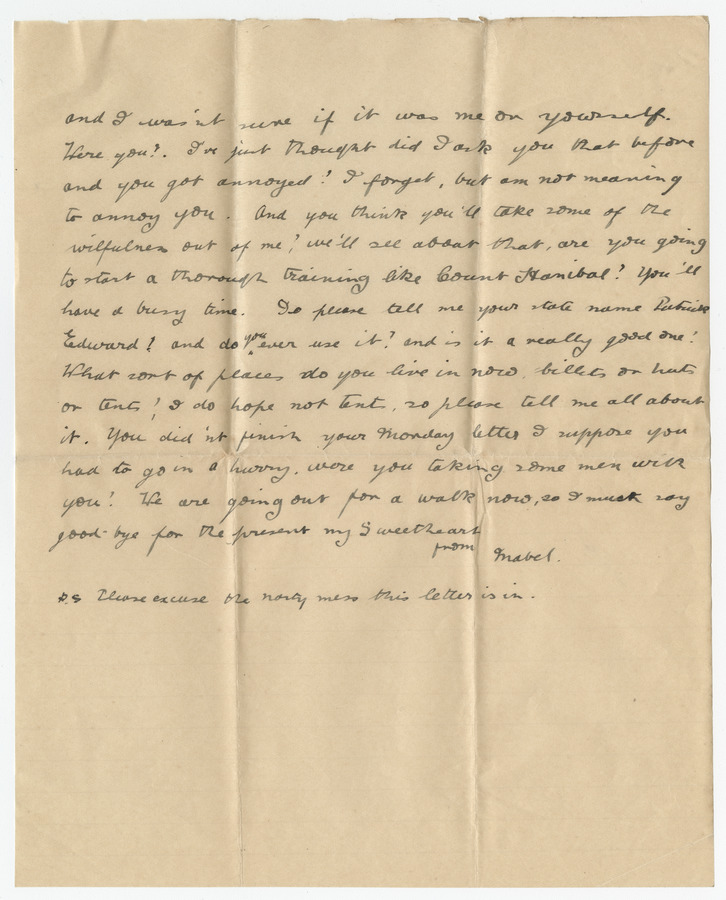 and I was'nt sure if it was me or yourself.
Were you?. I've just thought did I ask you that before
and you got annoyed? I forget, but am not meaning
to annoy you. And you think you'll take some of the
wilfulness out of me? we'll see about that, are you going
to start a thorough training like Count Hanibal? You'll
have a busy time. Do please tell me your state name Patrick
Edward? and do you ever use it? and is it a really good one?
What sort of places do you live in now, billets or huts
or tents? I do hope not tents, so please tell me all about
it. You did'nt finish your Monday letter I suppose you
had to go in a hurry, were you taking some men with
you? We are going out for a walk now, so I must say
good-bye for the present my Sweetheart
from Mabel.
P.S Please excuse the nasty mess this letter is in.